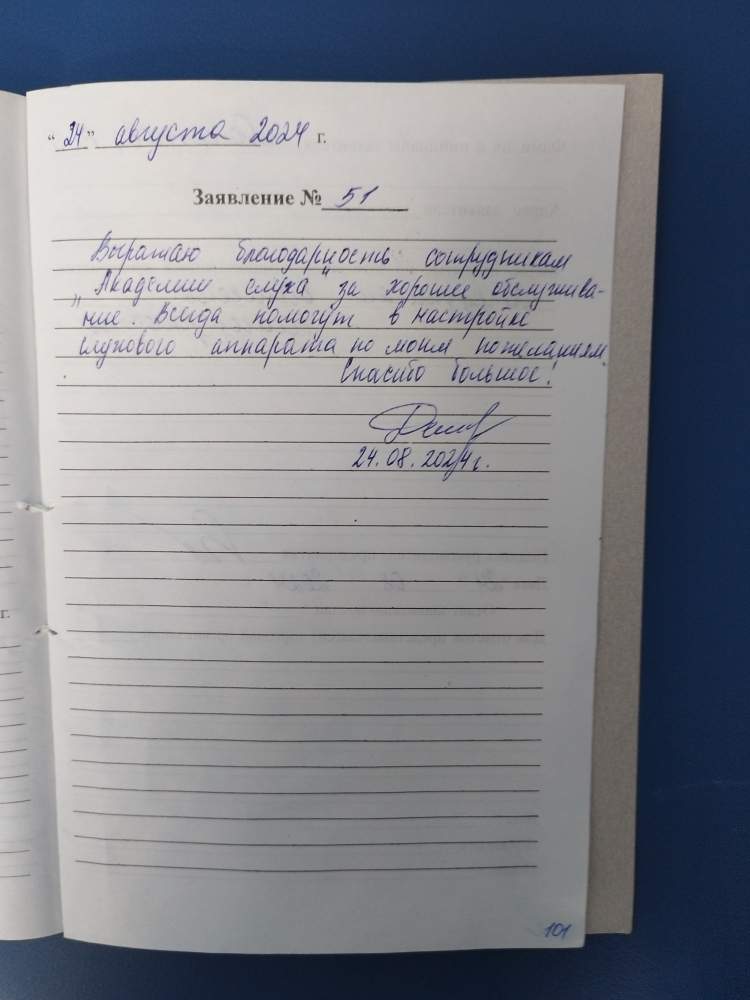 "24" августа 2024 г.
Заявление № 51
Выражаю благодарность сотрудникам
„Академии слуха" за хорошее обслужива-
ние. Всегда помогут в настройке
слухового аппарата по моим пожеланиям.
Спасибо большое!
24.08.2024г.
г.
101